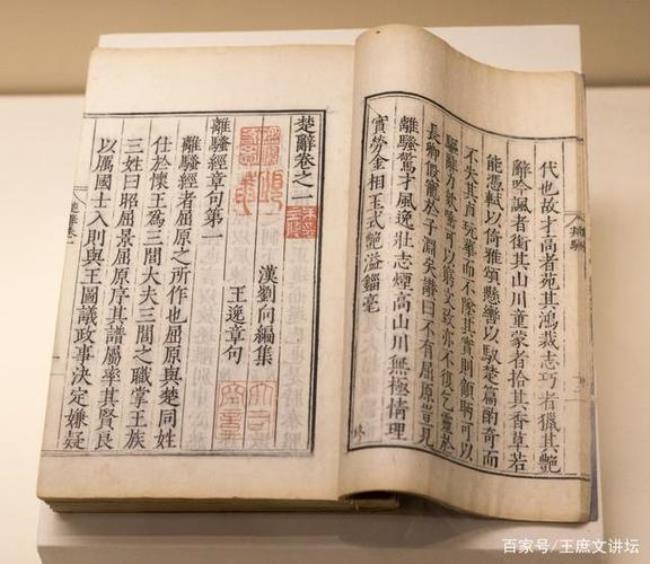 代也故才高者苑其鴻裁志巧者獵其艷
辭吟諷者銜其山川童蒙者拾其香草若
能憑軾以倚雅頌懸轡以馭楚篇酌奇而
不失其貞玩華而不墜其實則顧眄可以
驅辭力欬唾可以窮文致亦不復乞靈於
長卿假寵於子淵矣讚曰不有屈原豈見
離騷驚才風逸壯志煙高山川無極情理
實勞金相玉式艷溢錙毫
楚辭卷之一
漢劉向編集
王逸章句
離騷經章句第一
離騷經者屈原之所作也屈原與楚同姓
仕於懷王為三閭大夫三閭之職掌王族
三姓曰昭屈景屈原序其譜屬率其賢良
以厲國士入則與王圖議政事決定嫌疑
百家号/王庶文讲坛